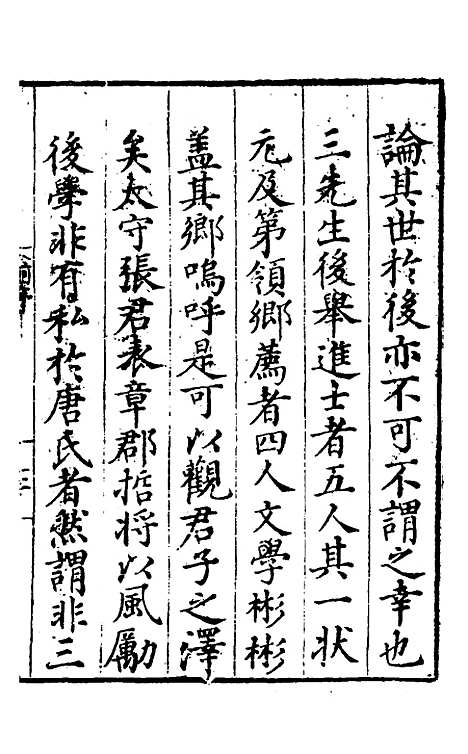 論其世於後亦不可不謂之幸也
三先生後舉進士者五人其一狀
元及第領鄉薦者四人文學彬彬
盖其鄉嗚呼是可以觀君子之澤
矣太守張君表章郡哲将以風勵
後學非有私於唐氏者然謂非三